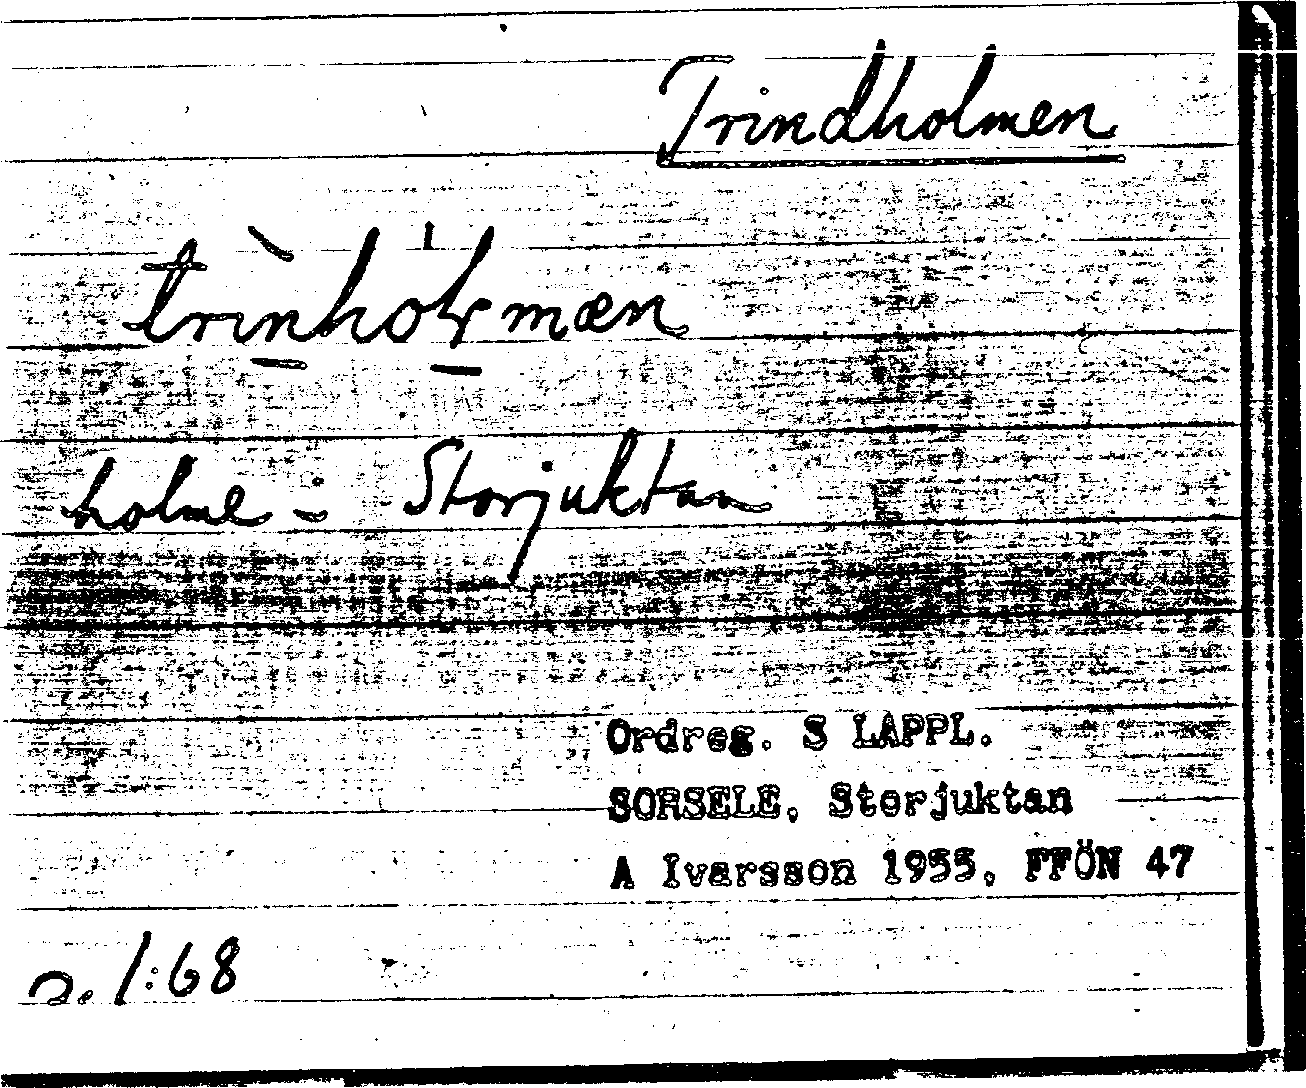 Trindholmen
trìnhólmæn
holme i Storjuktan
Ordreg. S LAPPL.
SORSELE, Storjuktan
A Ivarsson 1955, FFÖN 47
1:68